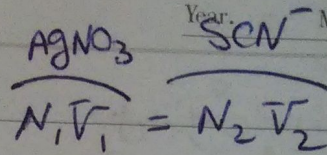 Year.
AgNO₃ SCN⁻
N₁V₁ = N₂V₂